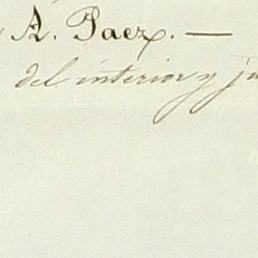 A. Paez. —
del interior y ju